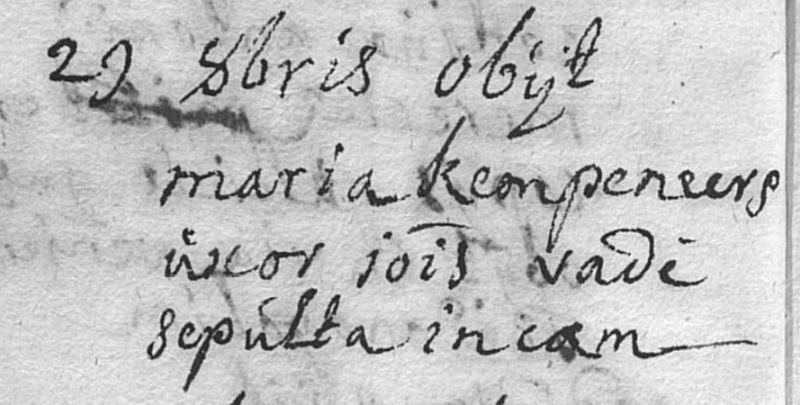 29 8bris obijt
maria kempeneers
uxor iois vade
sepulta in coem